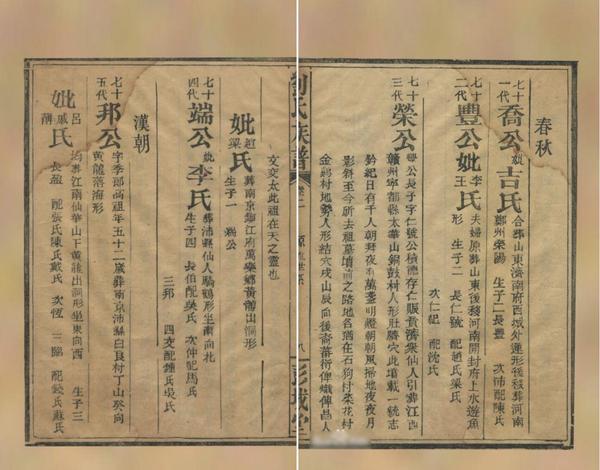 春秋
七十一代 喬公 妣 吉氏 合葬山東濟南府西城外蓮形後移葬河南
鄭州榮陽 生子二 長豐 次沛配陳氏
七十二代 豐公 妣 李 王 氏 夫婦原葬山東後移河南開封府上水遊魚
形 生子二 長仁號 配趙氏梁氏
次仁杞 配沈氏
七十三代 榮公 豐公長子字仁號公積德存仁賑貴濟眾仙人引葬江西
贛州寧都縣太華山銅鼓村人形肚臍穴此墳載一統志
鈐記日有千人朝拜夜有萬盞明燈朝朝風掃地夜夜月
影斜至今所去祖墓墳前之路地名猶在石狗村朵花村
金 村地勢人形結穴戌山辰向後裔蕃衍俾熾俾昌人
文交太此祖在天之靈也
妣 趙 梁 氏 葬南京鎮江府萬樂鄉黃龍出洞形
生子一 端公
七十四代 端公 妣 李氏 葬沛縣仙人騎鶴形坐南向北
生子四 長伯配吳氏 次仲配馬氏
三邦 四交配鍾氏吳氏
漢朝
七十五代 邦公 字季即高祖年五十二歲葬南京沛縣白良村丁山癸向
黃龍落海形
妣 呂 戚 薄 氏 均葬江南仙華山下黃龍出洞形坐東向西 生子三
長盈 配張氏陳氏戴氏 次恆 三 配 氏蘇氏
劉氏族譜 卷二 源流世系 八 彭城堂